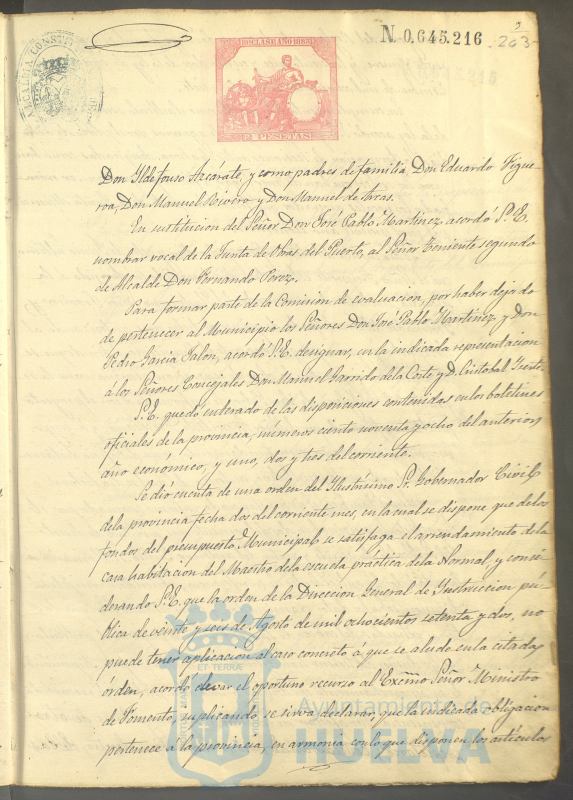 N. 0.645.216
203
ALCALDIA CONSTIT
10ª CLASE AÑO 1883
2 PESETAS
Don Ildefonso Azcárate, y como padres de familia, Don Eduardo Figue-
roa, Don Manuel Rivero y Don Manuel de Arcas.
En sustitucion del Señor Don José Pablo Martinez, acordó S. E.
nombrar vocal de la Junta de Obras del Puerto, al Señor Teniente segundo
de Alcalde Don Fernando Perez.
Para formar parte de la Comision de evaluacion, por haber dejado
de pertenecer al Municipio los Señores Don José Pablo Martinez y Don
Pedro Garcia Jalon, acordó S. E. designar, en la indicada representacion
á los Señores Concejales Don Manuel Garrido de la Corte y D. Cristobal
S. E. quedó enterado de las disposiciones contenidas en los boletines
oficiales de la provincia, números ciento noventa y ocho del anterior
año economico, y uno, dos y tres del corriente.
Se dió cuenta de una orden del Ilustrísimo Sr. Gobernador Civil
de la provincia fecha dos del corriente mes, en la cual se dispone que de los
fondos del presupuesto Municipal se satisfaga el arrendamiento de la
casa habitacion del Maestro de la escuela práctica de la Normal, y consi-
derando S. E. que la orden de la Direccion General de Instruccion pú-
blica de veinte y seis de Agosto de mil ochocientos setenta y dos, no
puede tener aplicacion al caso concreto á que se alude en la citada
órden, acordó elevar el oportuno recurso al Excmo Señor Ministro
de Fomento, suplicando se sirva declarar, que la indicada obligacion
pertenece á la provincia, en armonia con lo que disponen los artículos
ET TERRÆ
Ayuntamiento de
HUELVA